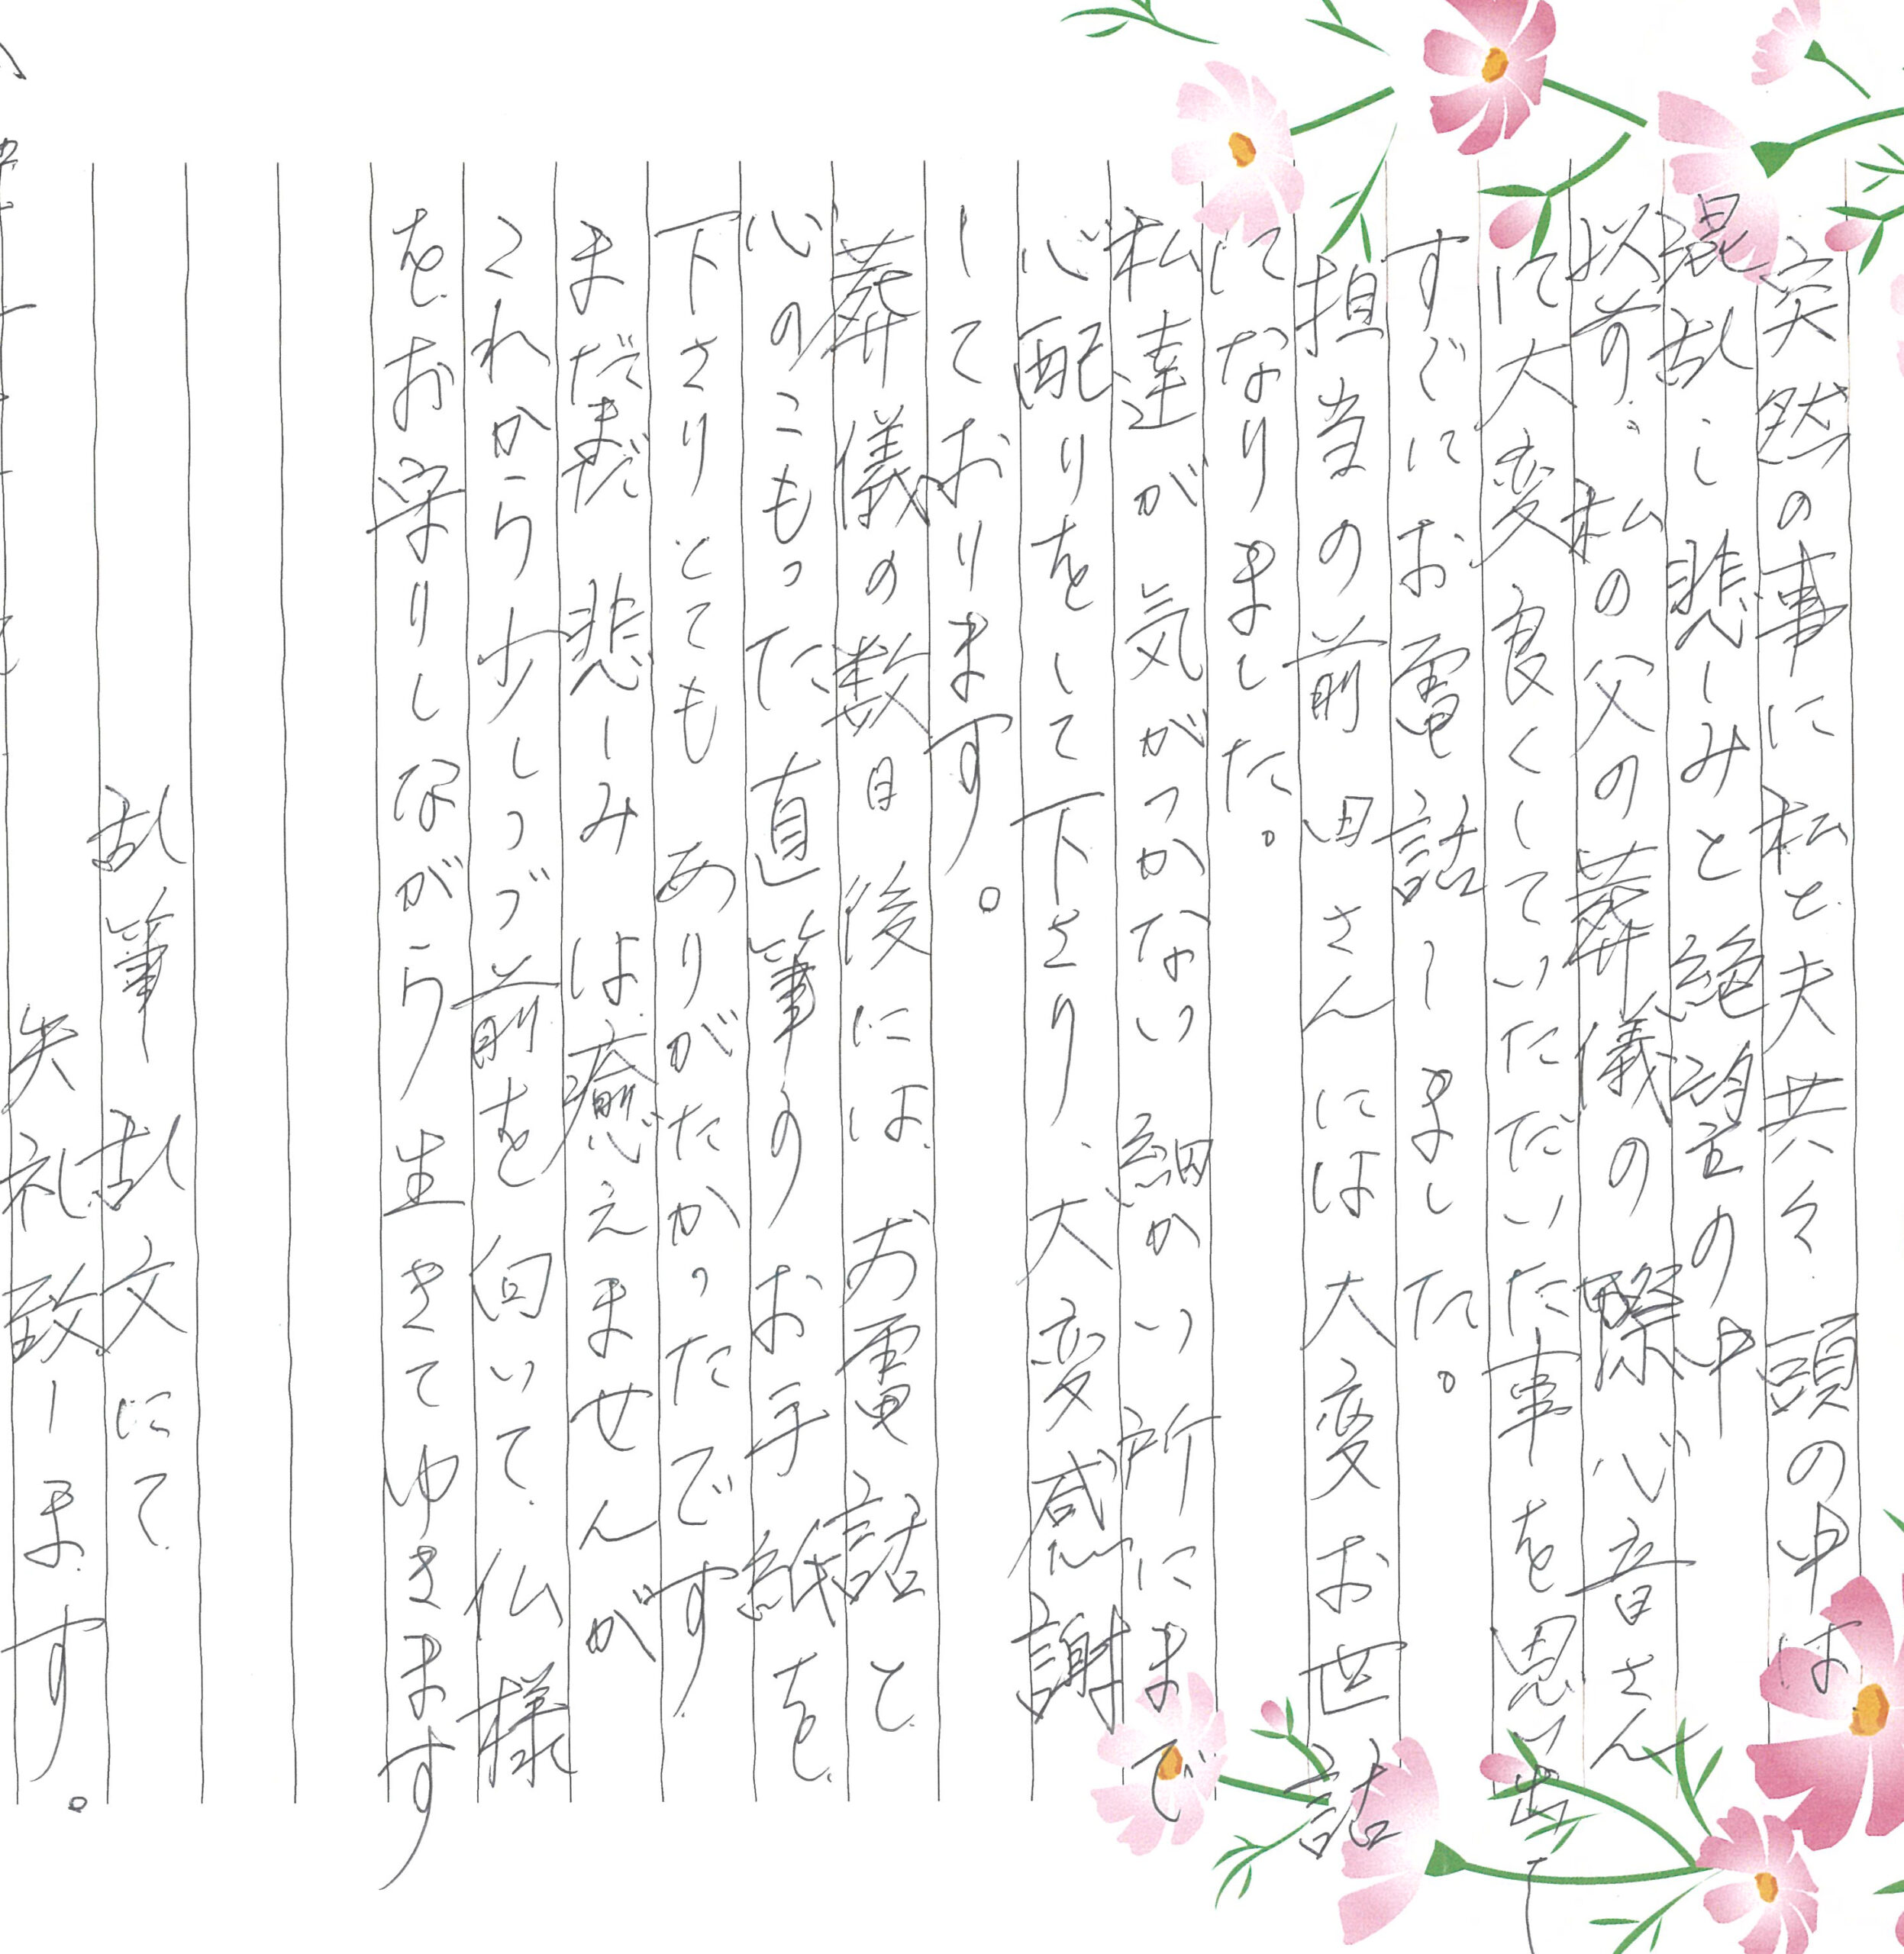 突然の事に私と夫共々頭の中は
混乱し悲しみと絶望の中
以前、私の父の葬儀の際心音さん
に大変良くしていただいた事を思い出し
すぐにお電話しました。
担当の前田さんには大変お世話
になりました。
私達が気がつかない細かい所にまで
心配りをして下さり、大変感謝
しております。
葬儀の数日後にはお電話と
心のこもった直筆のお手紙を
下さりとてもありがたかったです
まだまだ悲しみは癒えませんが
これから少しづつ前を向いて仏様
をお守りしながら生きてゆきます
乱筆乱文にて
失礼致します。